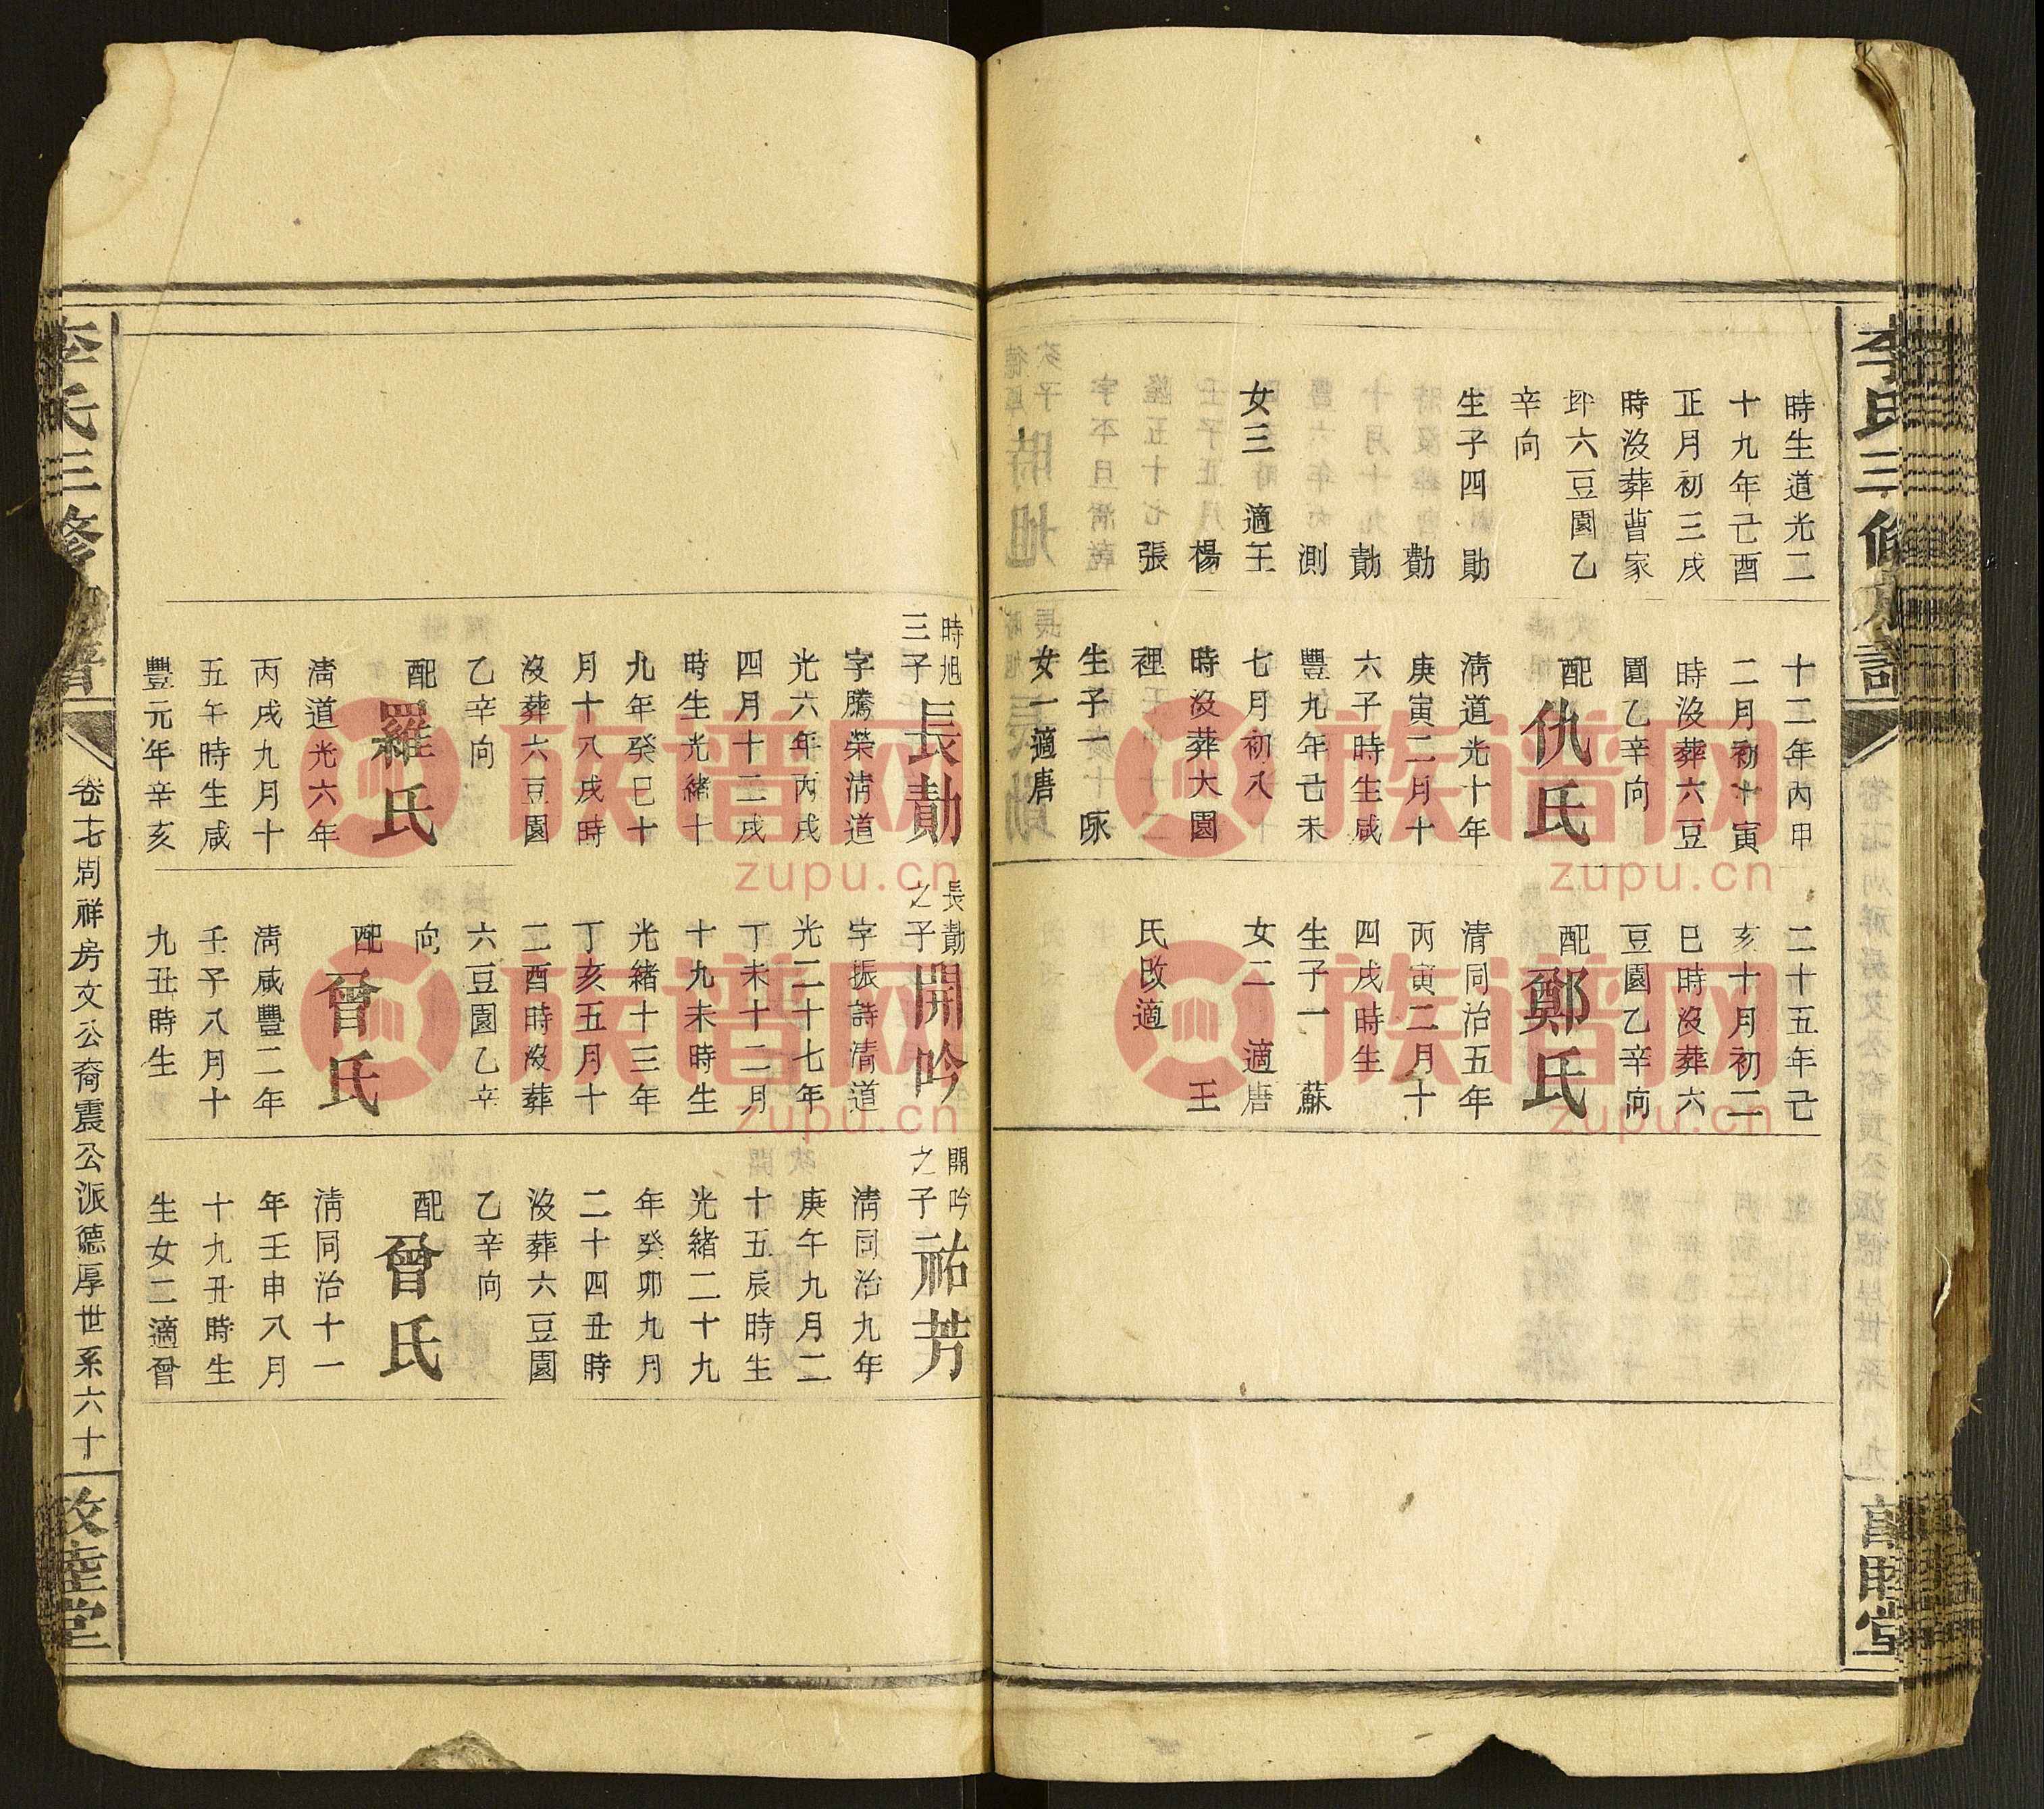 李氏三修族譜
時生道光二
十九年己酉
正月初三戌
時沒葬曹家
坪六豆園乙
辛向
生子四 勛
勷
勣
測
女三 適王
楊
張
十二年丙申
二月初十寅
時沒葬六豆
園乙辛向
配仇氏
清道光十年
庚寅二月十
六子時生咸
豐九年己未
七月初八
時沒葬大園
裡
生子一 咏
女一適唐
二十五年己
亥十月初二
巳時沒葬六
豆園乙辛向
配鄭氏
清同治五年
丙寅二月十
四戌時生
生子一 蘇
女二 適唐
王
氏改適
敦睦堂
時旭
三子
長勣
字騰榮清道
光六年丙戌
四月十二戌
時生光緒十
九年癸巳十
月十八戌時
沒葬六豆園
乙辛向
配羅氏
清道光六年
丙戌九月十
五午時生咸
豐元年辛亥
長勣
之子
開吟
字振詩清道
光二十七年
丁未十二月
十九未時生
光緒十三年
丁亥五月十
二酉時沒葬
六豆園乙辛
向
配曾氏
清咸豐二年
壬子八月十
九丑時生
開吟
之子
祐芳
清同治九年
庚午九月二
十五辰時生
光緒二十九
年癸卯九月
二十四丑時
沒葬六豆園
乙辛向
配曾氏
清同治十一
年壬申八月
十九丑時生
生女二適曾
李氏三修族譜
卷十七周祥房文公裔震公派德厚世系六十
敦睦堂
族谱网
zupu.cn
族谱网
zupu.cn
族谱网
zupu.cn
族谱网
zupu.cn